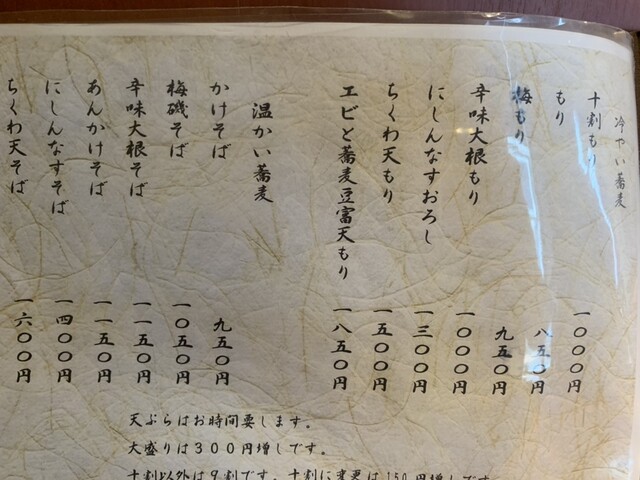 冷たい蕎麦
十割もり 一〇〇〇円
もり 八五〇円
梅もり 九五〇円
辛味大根もり 一〇〇〇円
にしんなすおろし 一三〇〇円
ちくわ天もり 一五〇〇円
エビと蕎麦豆富天もり 一八五〇円
温かい蕎麦
かけそば 九五〇円
梅磯そば 一〇五〇円
辛味大根そば 一一五〇円
あんかけそば 一一五〇円
にしんなすそば 一四〇〇円
ちくわ天そば 一六〇〇円
天ぷらはお時間要します。
大盛りは300円増しです。
十割以外は9割です。十割に変更は150円増しです